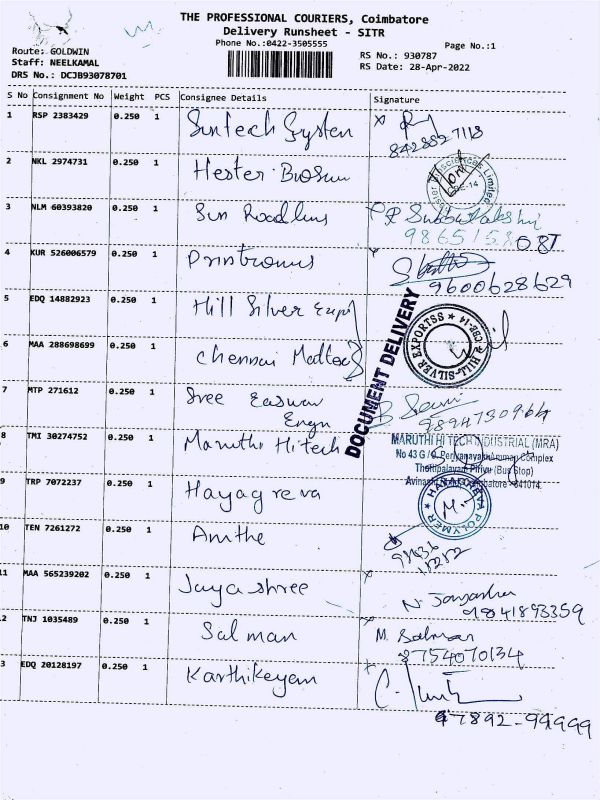 THE PROFESSIONAL COURIERS, Coimbatore
Delivery Runsheet - SITR
Phone No.:0422-3505555
Page No.:1
Route: GOLDWIN
Staff: NEELKAMAL
DRS No.: DCJB93078701
RS No.: 930787
RS Date: 28-Apr-2022
S No Consignment No Weight PCS Consignee Details Signature
1 RSP 2383429 0.250 1 Suntech System
8428827118
2 NKL 2974731 0.250 1 Hester
3 NLM 60393820 0.250 1 Sun Roadlins
4 KUR 526006579 0.250 1 Printronics
9600628629
5 EDQ 14882923 0.250 1 Hill Silver Expo
HILL SILVER EXPORTSS ★ CBE-14
6 MAA 288698699 0.250 1 Chennai
DOCUMENT DELIVERY
7 MTP 271612 0.250 1 Sree Easwar
Engn
9894730964
8 TMI 30274752 0.250 1 Maruthi Hitech
MARUTHI HI TECH INDUSTRIAL (MRA)
No 43 G
(Bus Stop)
641014.
9 TRP 7072237 0.250 1 Hayagreva
POLYMER
10 TEN 7261272 0.250 1 Amthe
11 MAA 565239202 0.250 1 Jayashree
9841893359
2 TNJ 1035489 0.250 1 Salman M. Salman
8754070134
3 EDQ 20128197 0.250 1 Karthikeyan
97892-99999